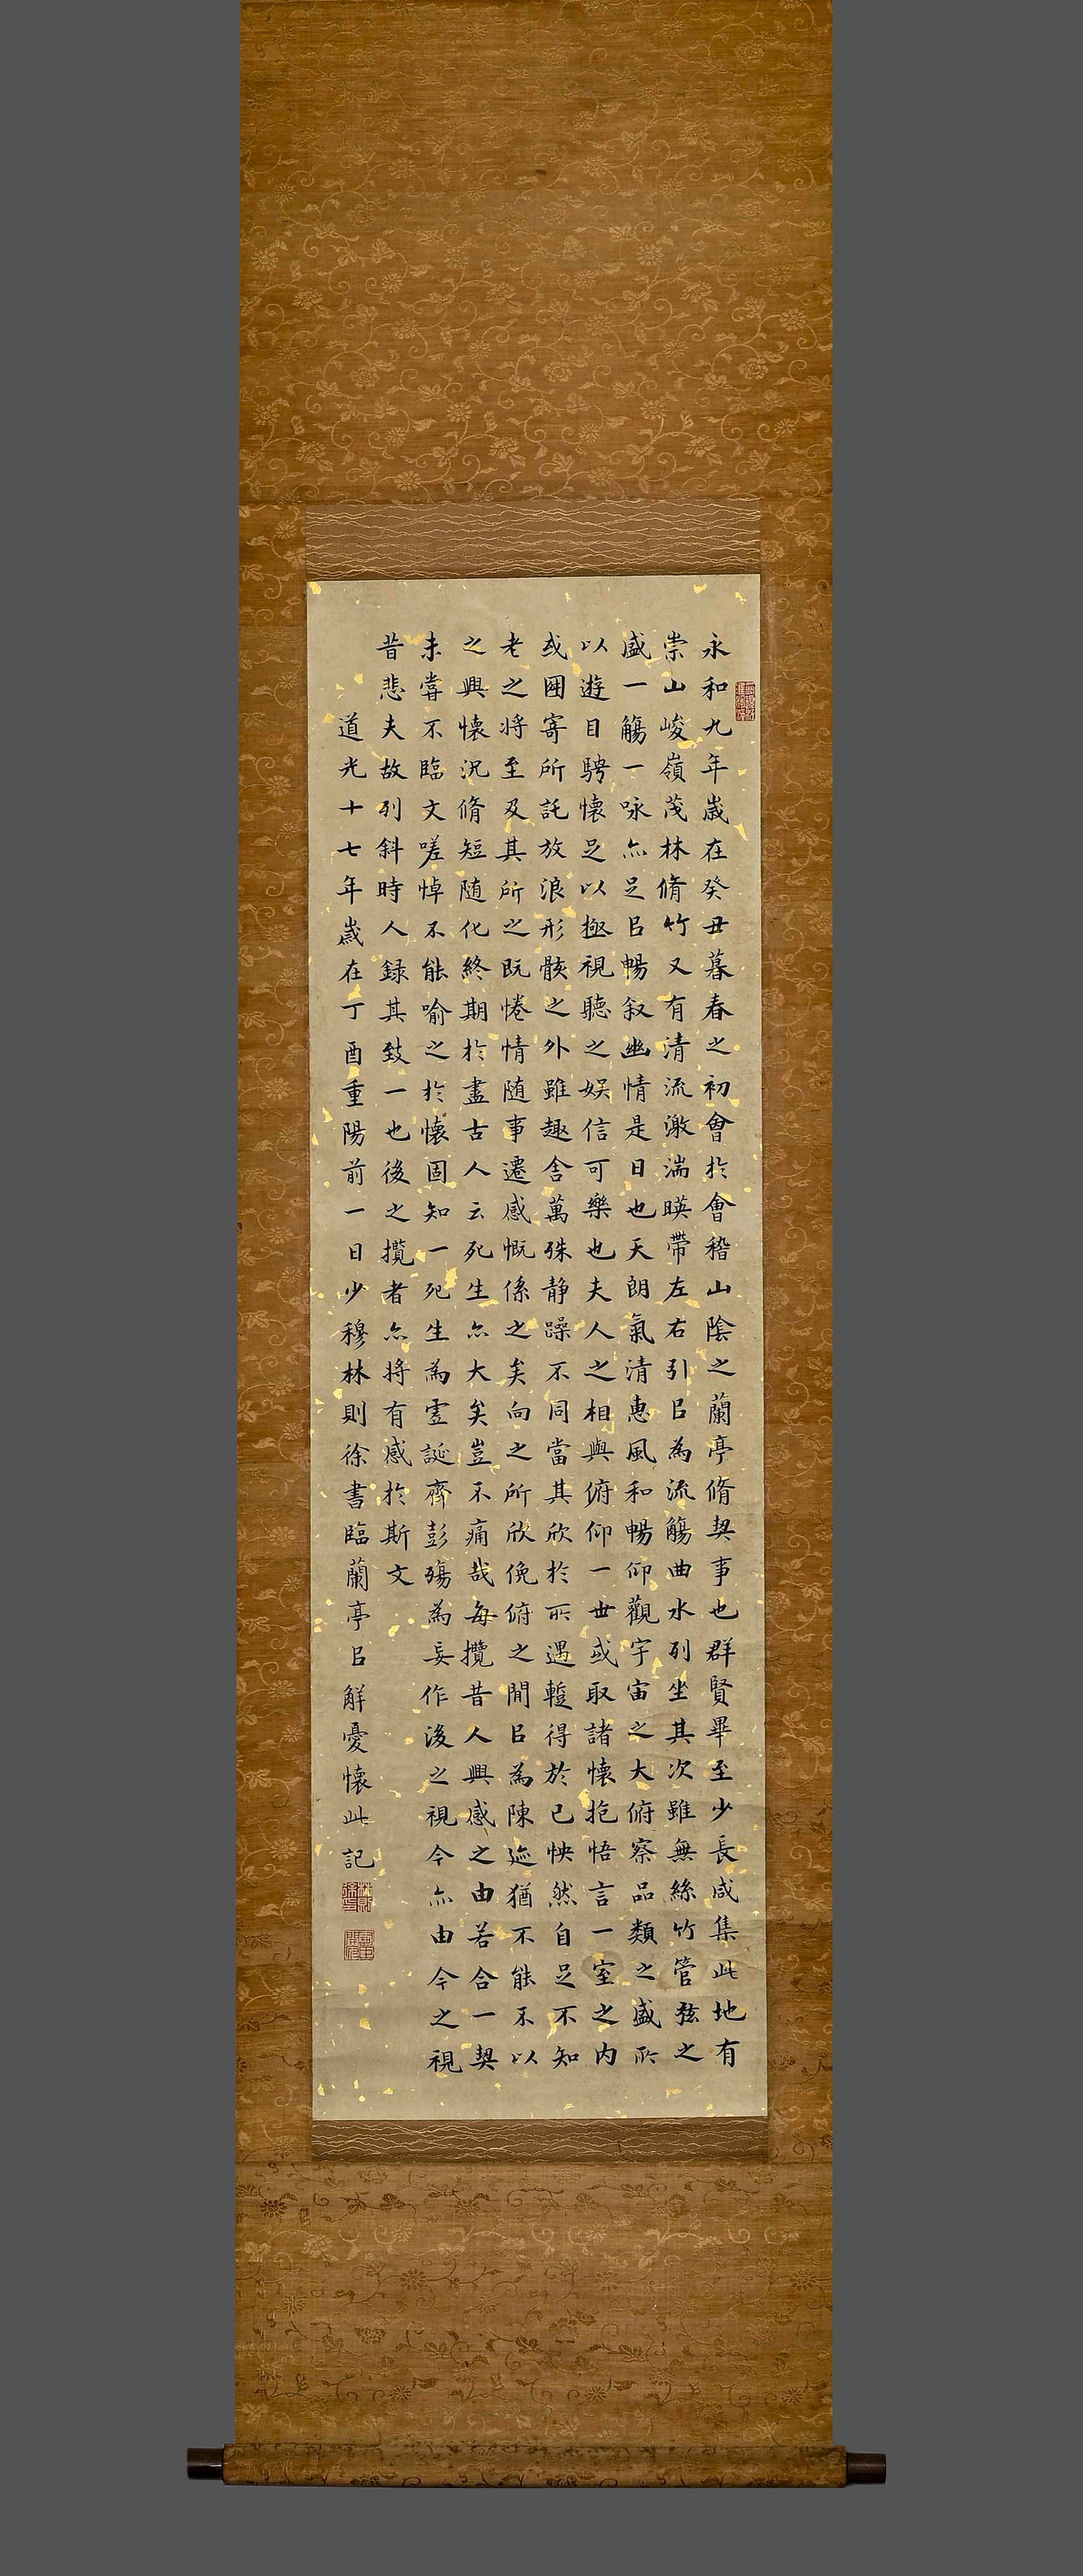 永和九年歲在癸丑暮春之初會於會稽山陰之蘭亭脩契事也群賢畢至少長咸集此地有
崇山峻嶺茂林脩竹又有清流激湍暎帶左右引㠯為流觴曲水列坐其次雖無絲竹管弦之
盛一觴一咏亦足㠯暢叙幽情是日也天朗氣清惠風和暢仰觀宇宙之大俯察品類之盛所
以遊目騁懷足以極視聽之娱信可樂也夫人之相與俯仰一世或取諸懷抱悟言一室之内
或因寄所託放浪形骸之外雖趣舍萬殊静躁不同當其欣於所遇蹔得於己怏然自足不知
老之将至及其所之既惓情随事遷感慨係之矣向之所欣俛俯之間㠯為陳迹猶不能不以
之興懷況脩短随化終期於盡古人云死生亦大矣豈不痛哉每攬昔人興感之由若合一契
未嘗不臨文嗟悼不能喻之於懷固知一死生為虛誕齊彭殤為妄作後之視今亦由今之視
昔悲夫故列斜時人録其致一也後之攬者亦将有感於斯文
道光十七年歲在丁酉重陽前一日少穆林則徐書臨蘭亭㠯解憂懷此記